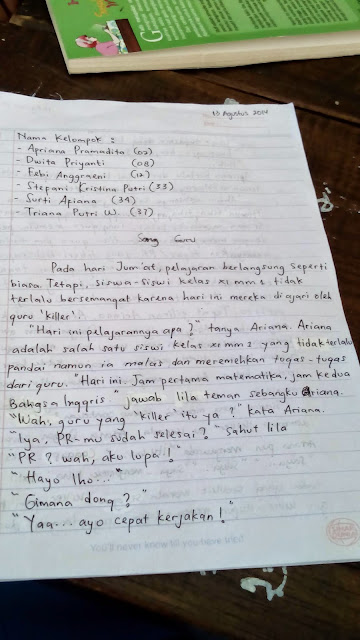 15 Agustus 2014
Nama Kelompok :
- Apriana Pramadita (02)
- Dwita Priyanti (08)
- Febi Anggraeni (12)
- Stefani Kristina Putri (33)
- Surti Apiana (34)
- Triana Putri W. (37)
Sang Guru
Pada hari Jum'at, pelajaran berlangsung seperti
biasa. Tetapi, siswa-siswi kelas XI mm 1 tidak
terlalu bersemangat karena hari ini mereka diajari oleh
guru 'killer'.
"Hari ini pelajarannya apa?" tanya Ariana. Ariana
adalah salah satu siswi kelas XI mm 2 yang tidak terlalu
pandai namun ia malas dan meremehkan tugas-tugas
dari guru. "Hari ini. Jam pertama matematika, jam kedua
Bahasa Inggris" jawab lila teman sebangku Ariana.
"Wah, guru yang 'killer' itu ya?" kata Ariana.
"Iya, PR-mu sudah selesai?" sahut lila
"PR? wah, aku lupa!"
"Hayo lho..."
"Gimana dong?"
"Yaa... ayo cepat kerjakan!"
You'll never know till you have tried